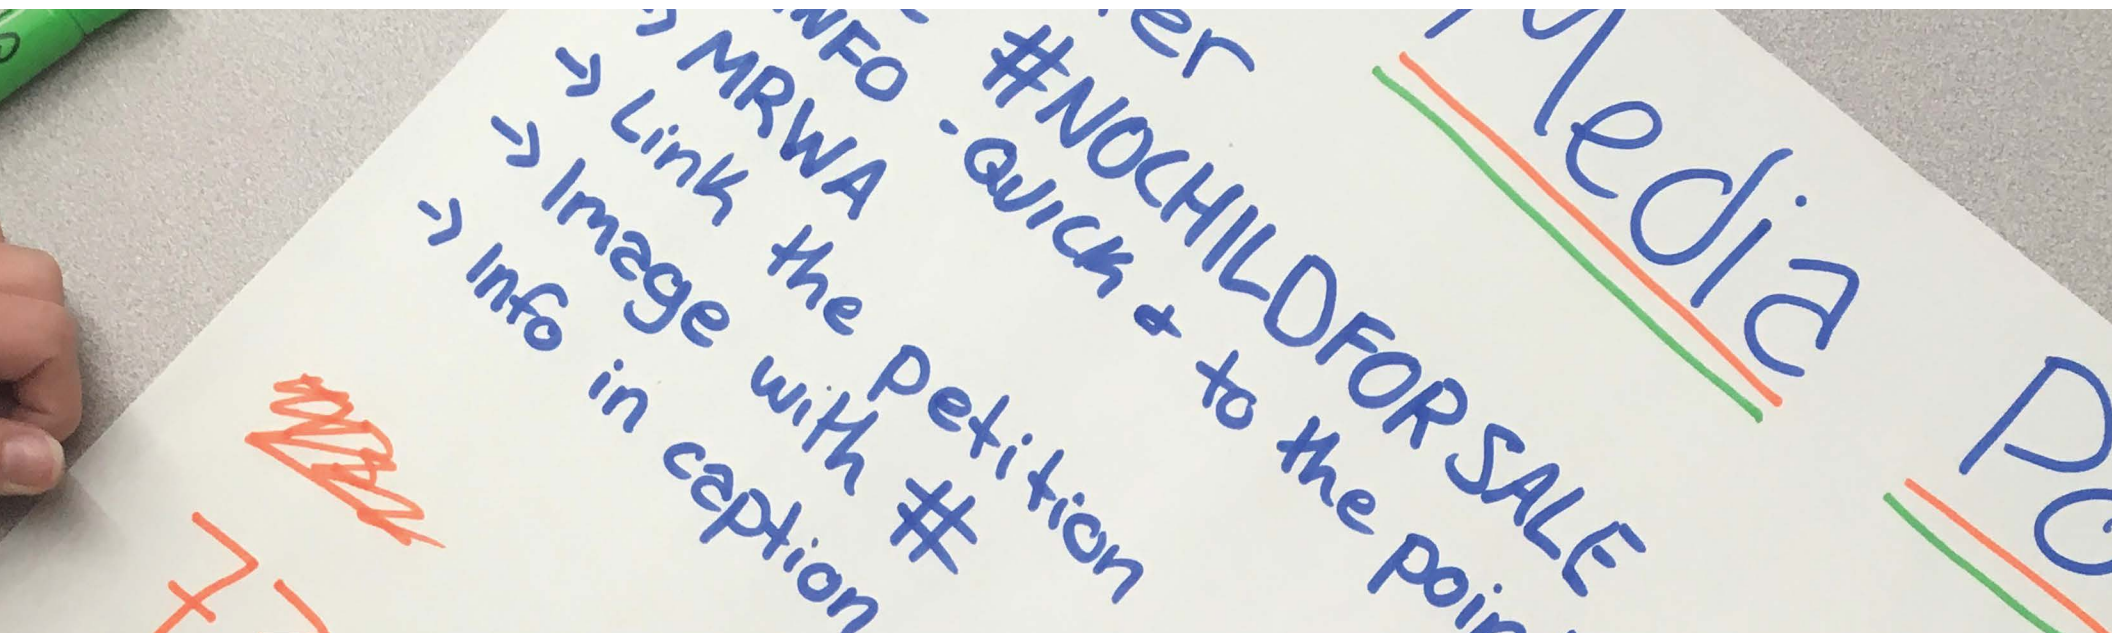 Media
#NOCHILDFORSALE
INFO - QUICK & to the
→ MRWA
→ Link the petition
→ Image with #
→ Info in caption